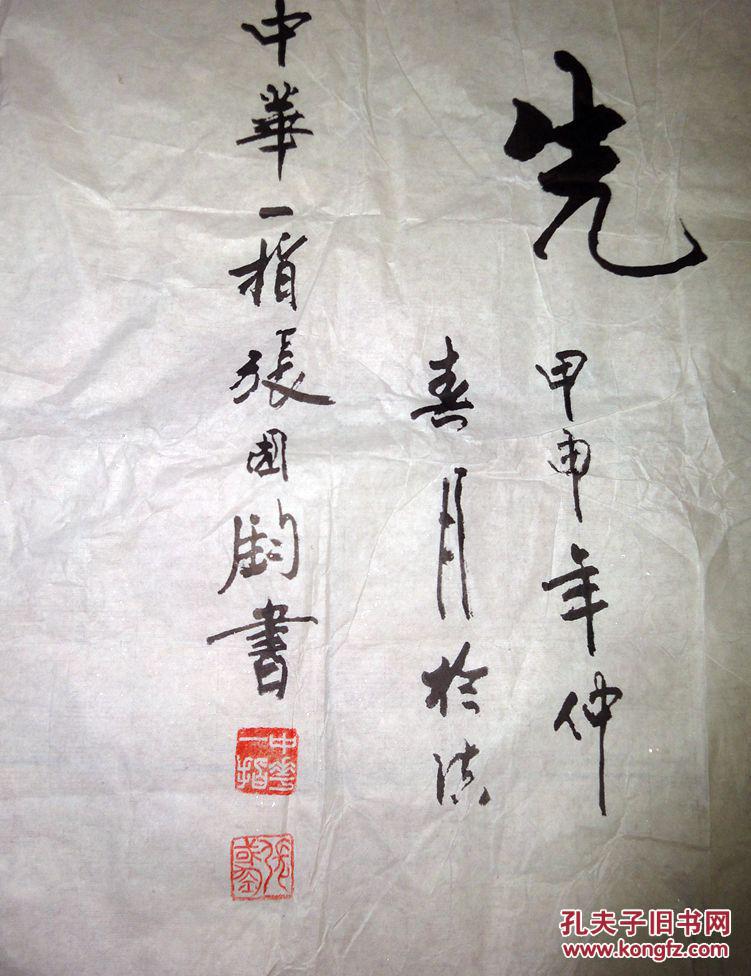 先
甲申年仲
春月於滇
中華一指張国書
中華一指
張國
孔夫子旧书网
www.kongfz.com